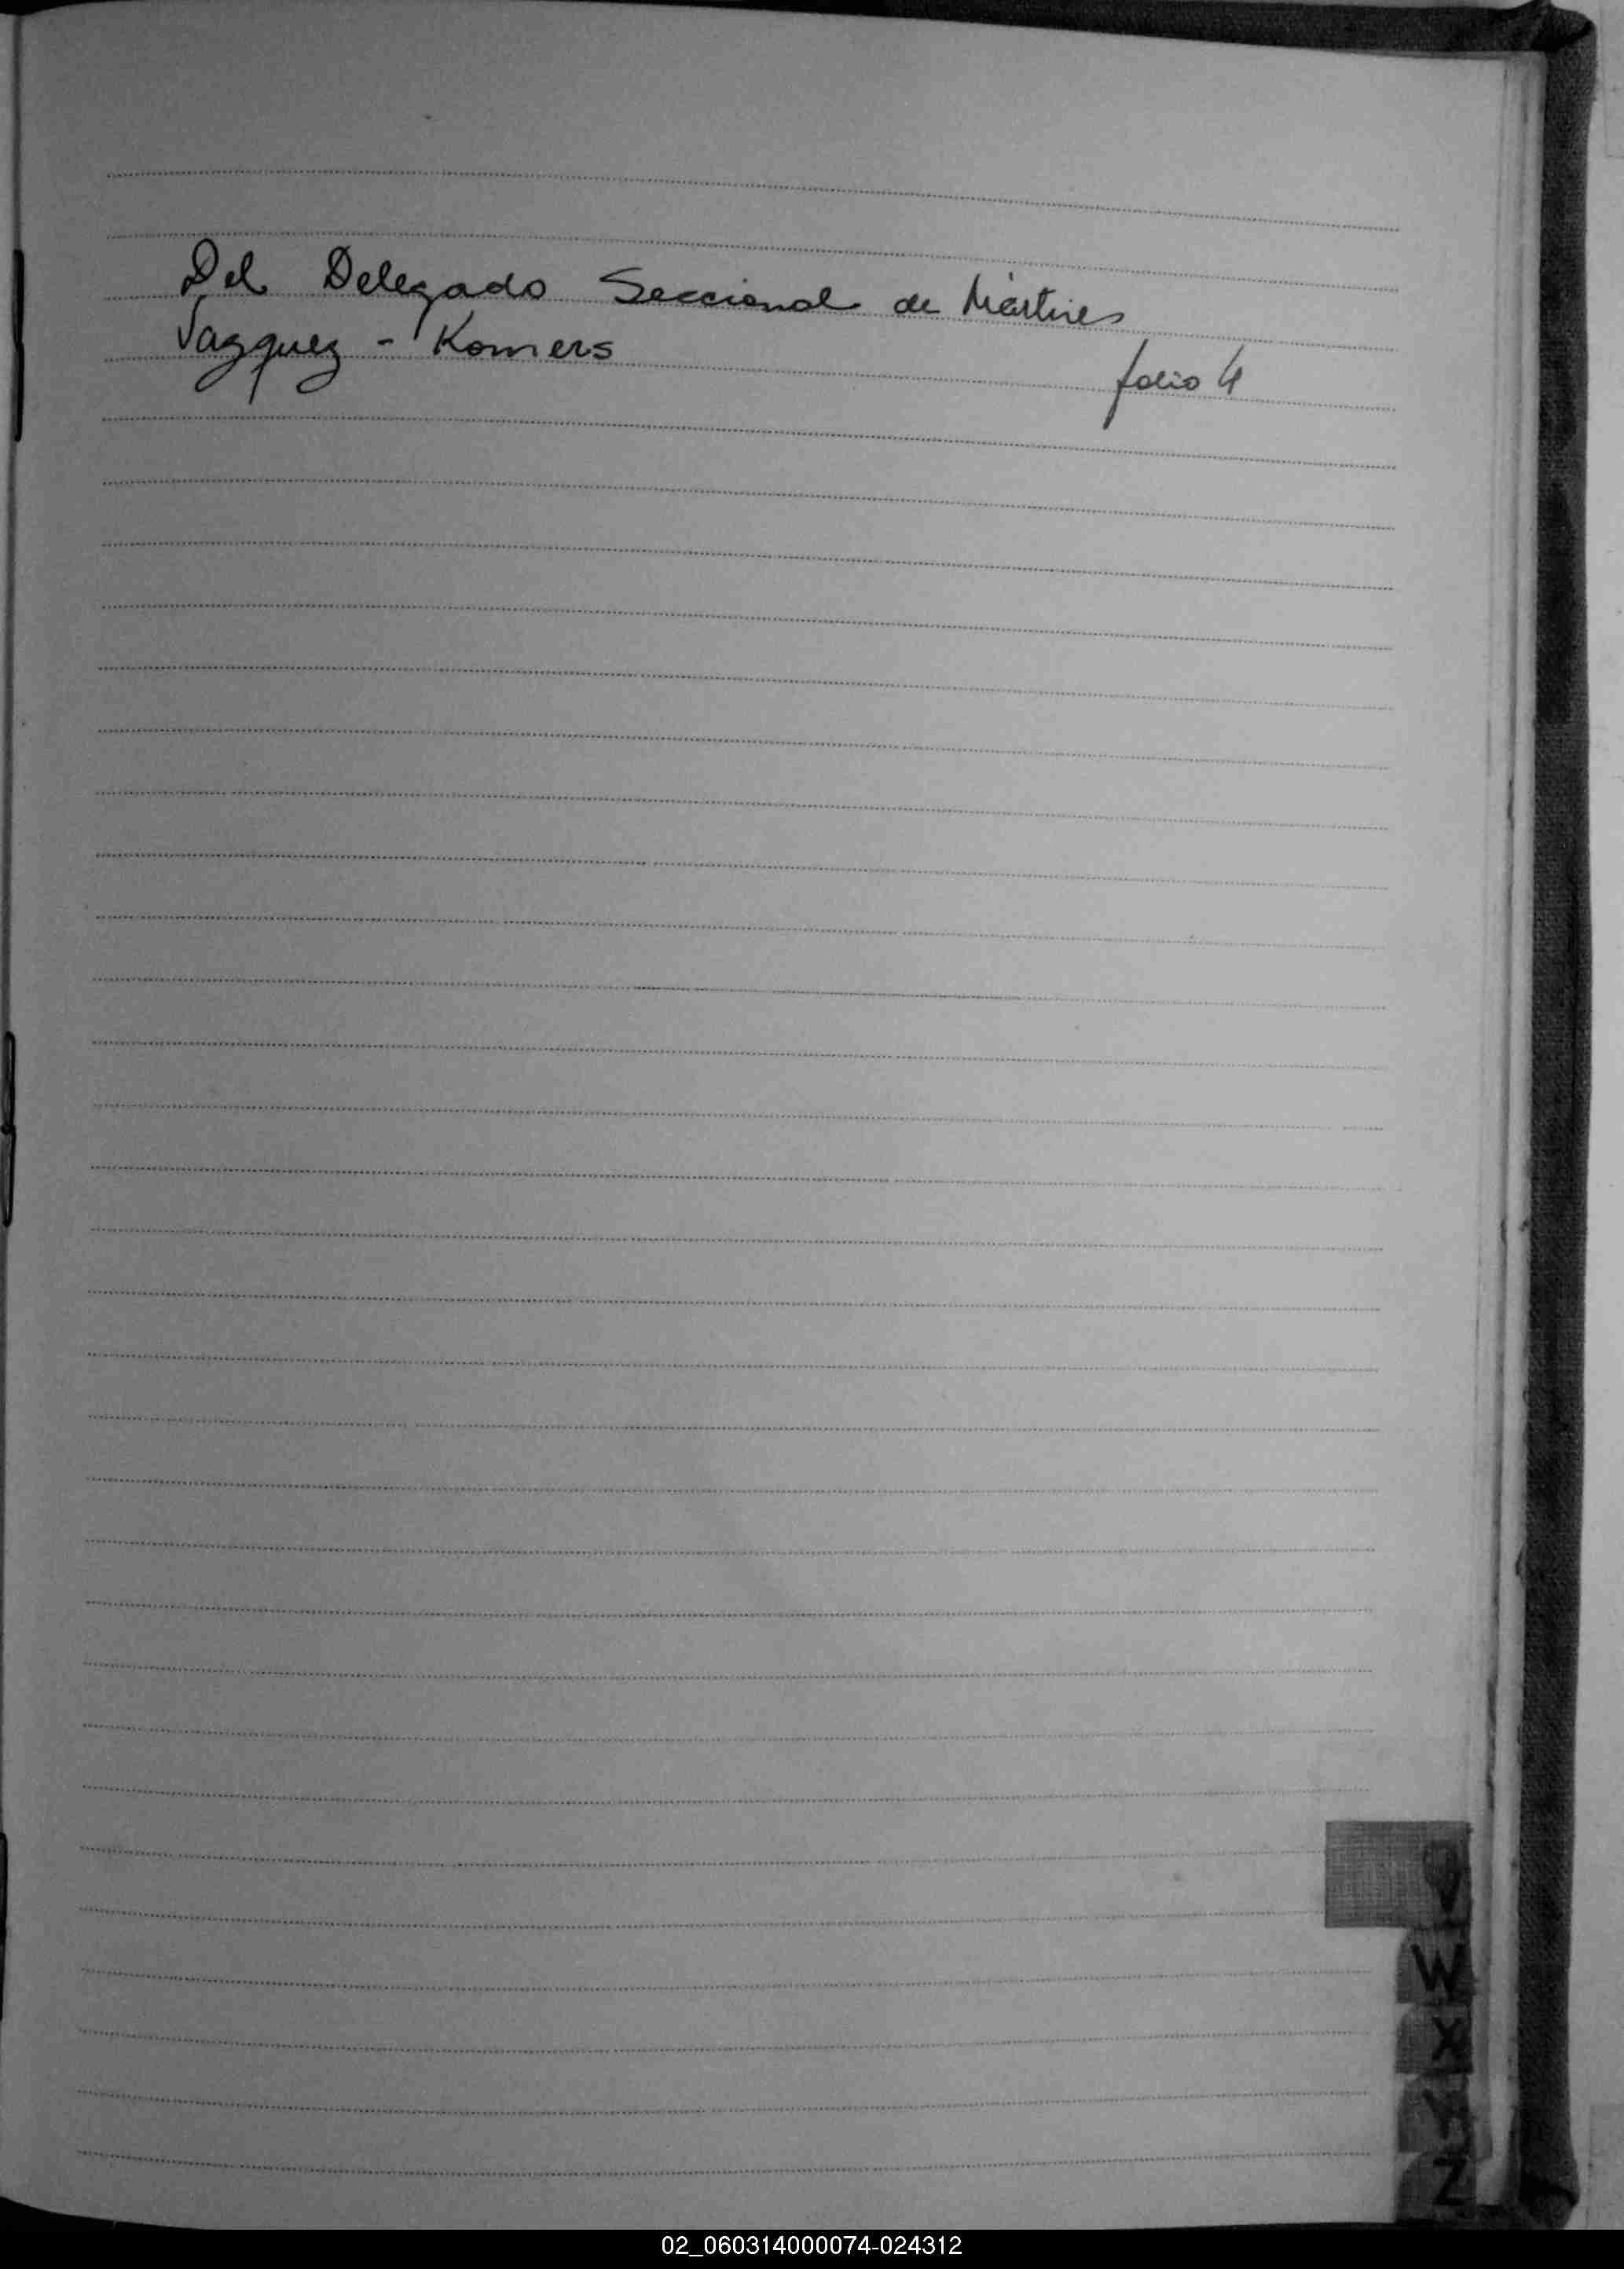 Del Delegado Seccional de Mártires
Vazquez - Komers
folio 4
V
W
X
Y
Z
02_060314000074-024312